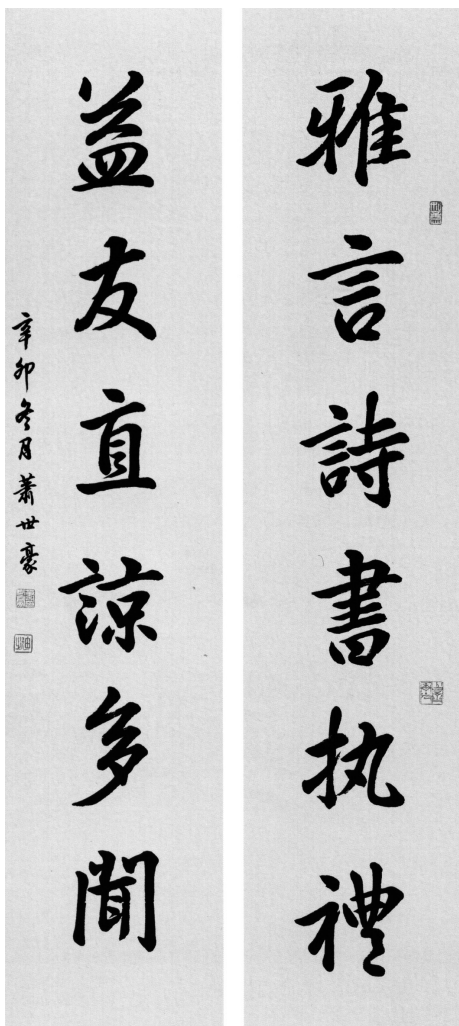 雅言詩書执禮
益友直諒多聞
辛卯冬月蕭世豪